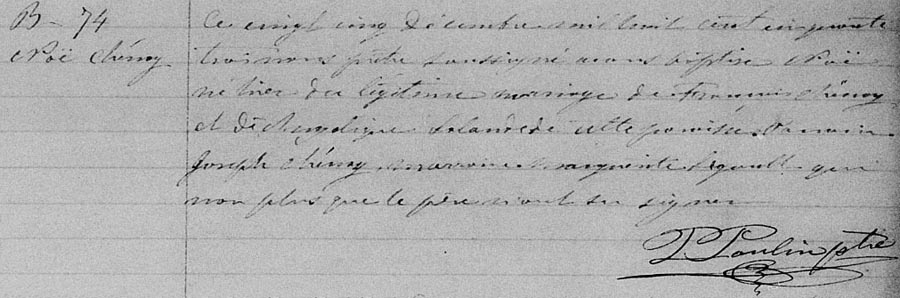 B - 74
Noë Chénoy
Ce vingt cinq décembre mil huit cent cinquante
trois nous prêtre soussigné avons baptisé Noë
né hier du légitime mariage de François Chénoy
et d'Angélique Lalande de cette paroisse. Parrain
Joseph Chénoy marraine Marguerite Legault qui
non plus que le père n'ont su signer
P Poulin ptre